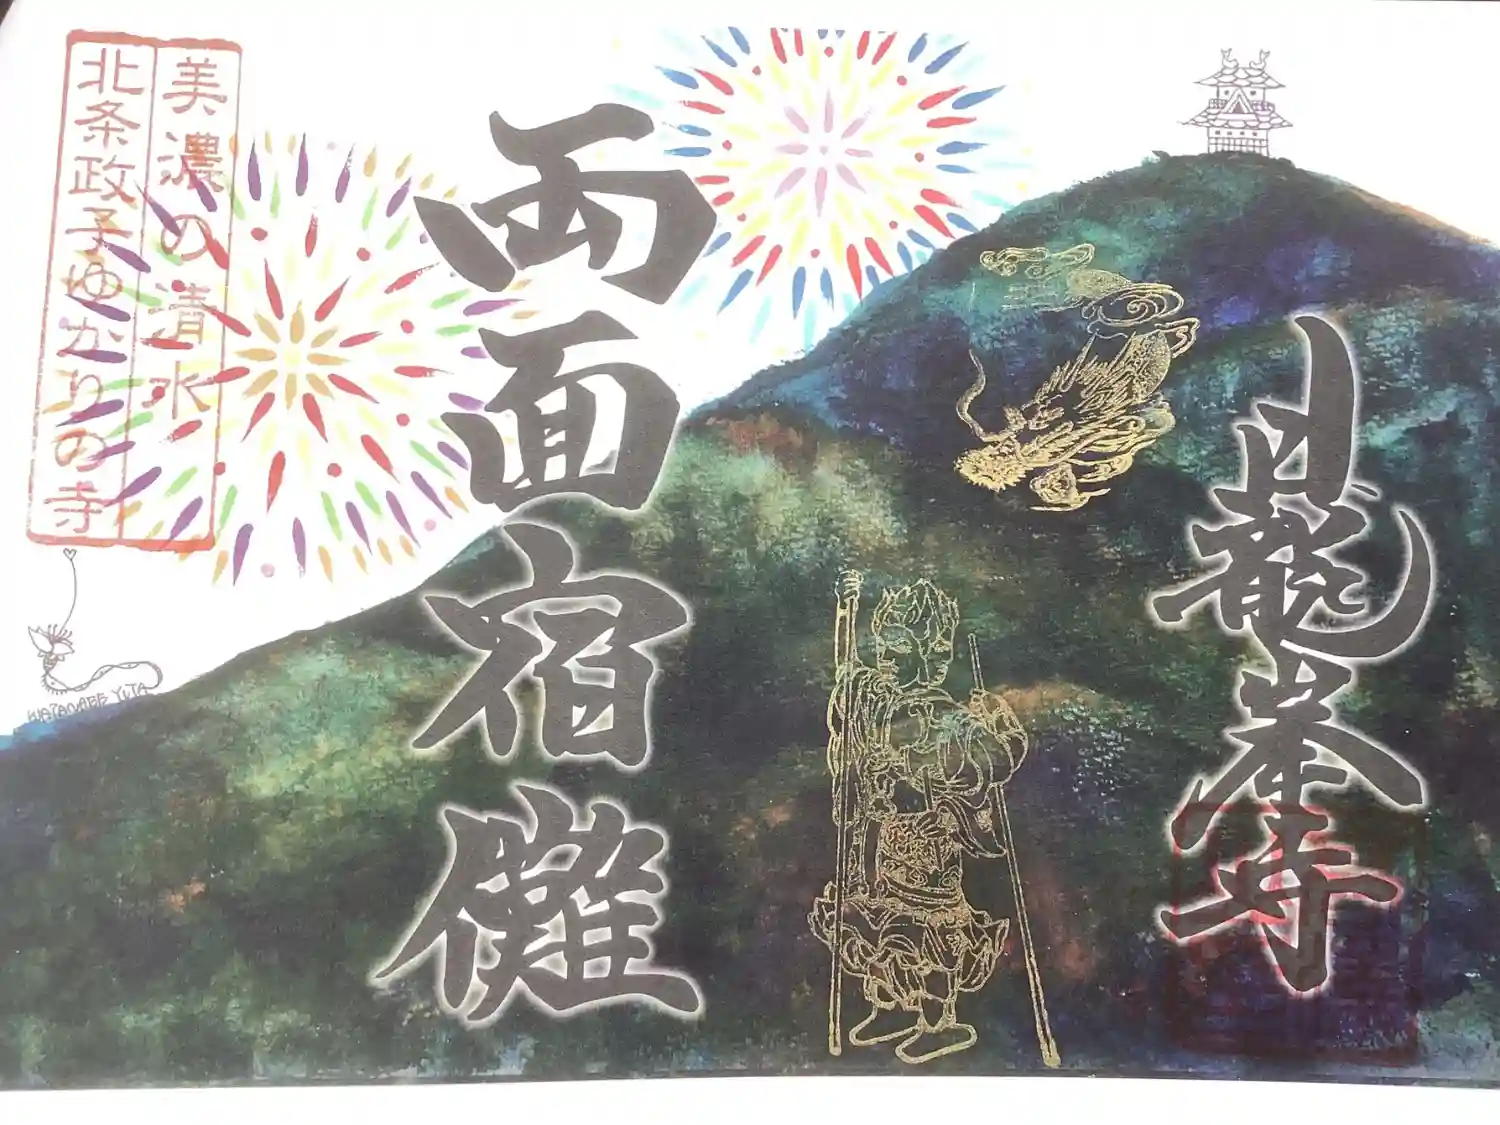 日龍峯寺
両面宿儺
美濃の清水
北条政子ゆかりの寺
WATANABE YUTA